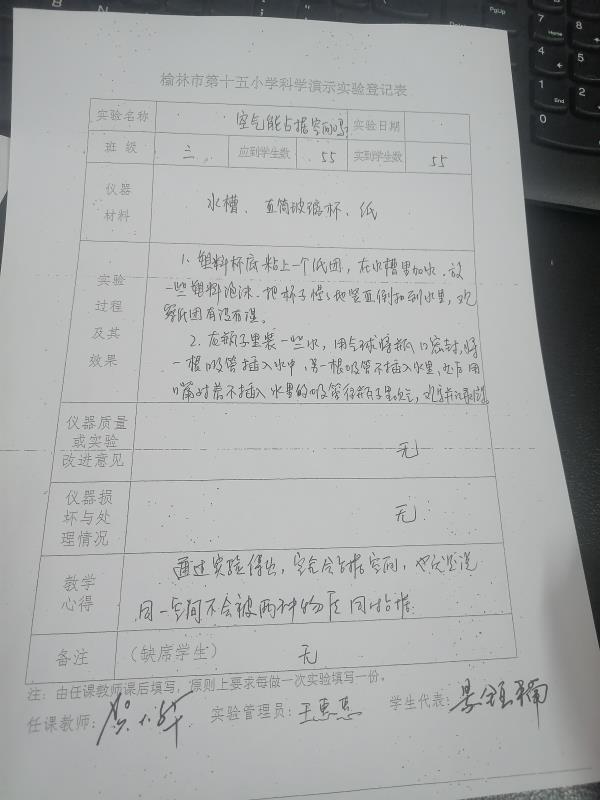 榆林市第十五小学科学演示实验登记表
实验名称 空气能占据空间吗? 实验日期
班 级 三 应到学生数 55 实到学生数 55
仪器
材料
水槽、直筒玻璃杯、纸
实验
过程
及其
效果
1、塑料杯底粘上一个纸团,在水槽里加水、放
一些塑料泡沫、把杯子慢慢地竖直倒扣到水里,观
察纸团有没有湿。
2、在瓶子里装一些水,用 将瓶口密封,将
一根吸管插入水中,另一根吸管不插入水里,然后用
嘴对着不插入水里的吸管往瓶子里吹气,观察并记录
仪器质量
或实验
改进意见
无
仪器损
坏与处
理情况
无
教学
心得
通过实验得出,空气会占据空间,
同一空间不会被两种物质同时占据
备注 (缺席学生) 无
注:由任课教师课后填写,原则上要求每做一次实验填写一份。
任课教师: 实验管理员:王惠惠 学生代表:
PgUp
PgDn
Home
End
Ins
7
8
4
5
1
2
0